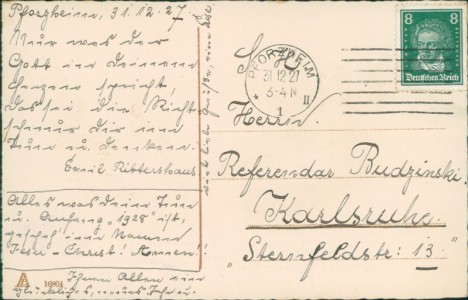 Pforzheim, 31.12.27
Nur was der
Gott in deinem
Herzen spricht,
Das sei die Richt-
schnur dir im
Tun u. Denken.
Emil Rittershaus
Alles was Deine Tun
u. Anfang "1928" ist,
gescheh' im Namen
Jesu-Christ! Amen!!
Ihnen Allen ein
glückliches,
PFORZHEIM
31.12.27
3-4 N
* 1 II
8 8
Deutsches Reich
Herrn
Referendar Budzinski.
Karlsruhe.
"Sternfeldstr: 13"